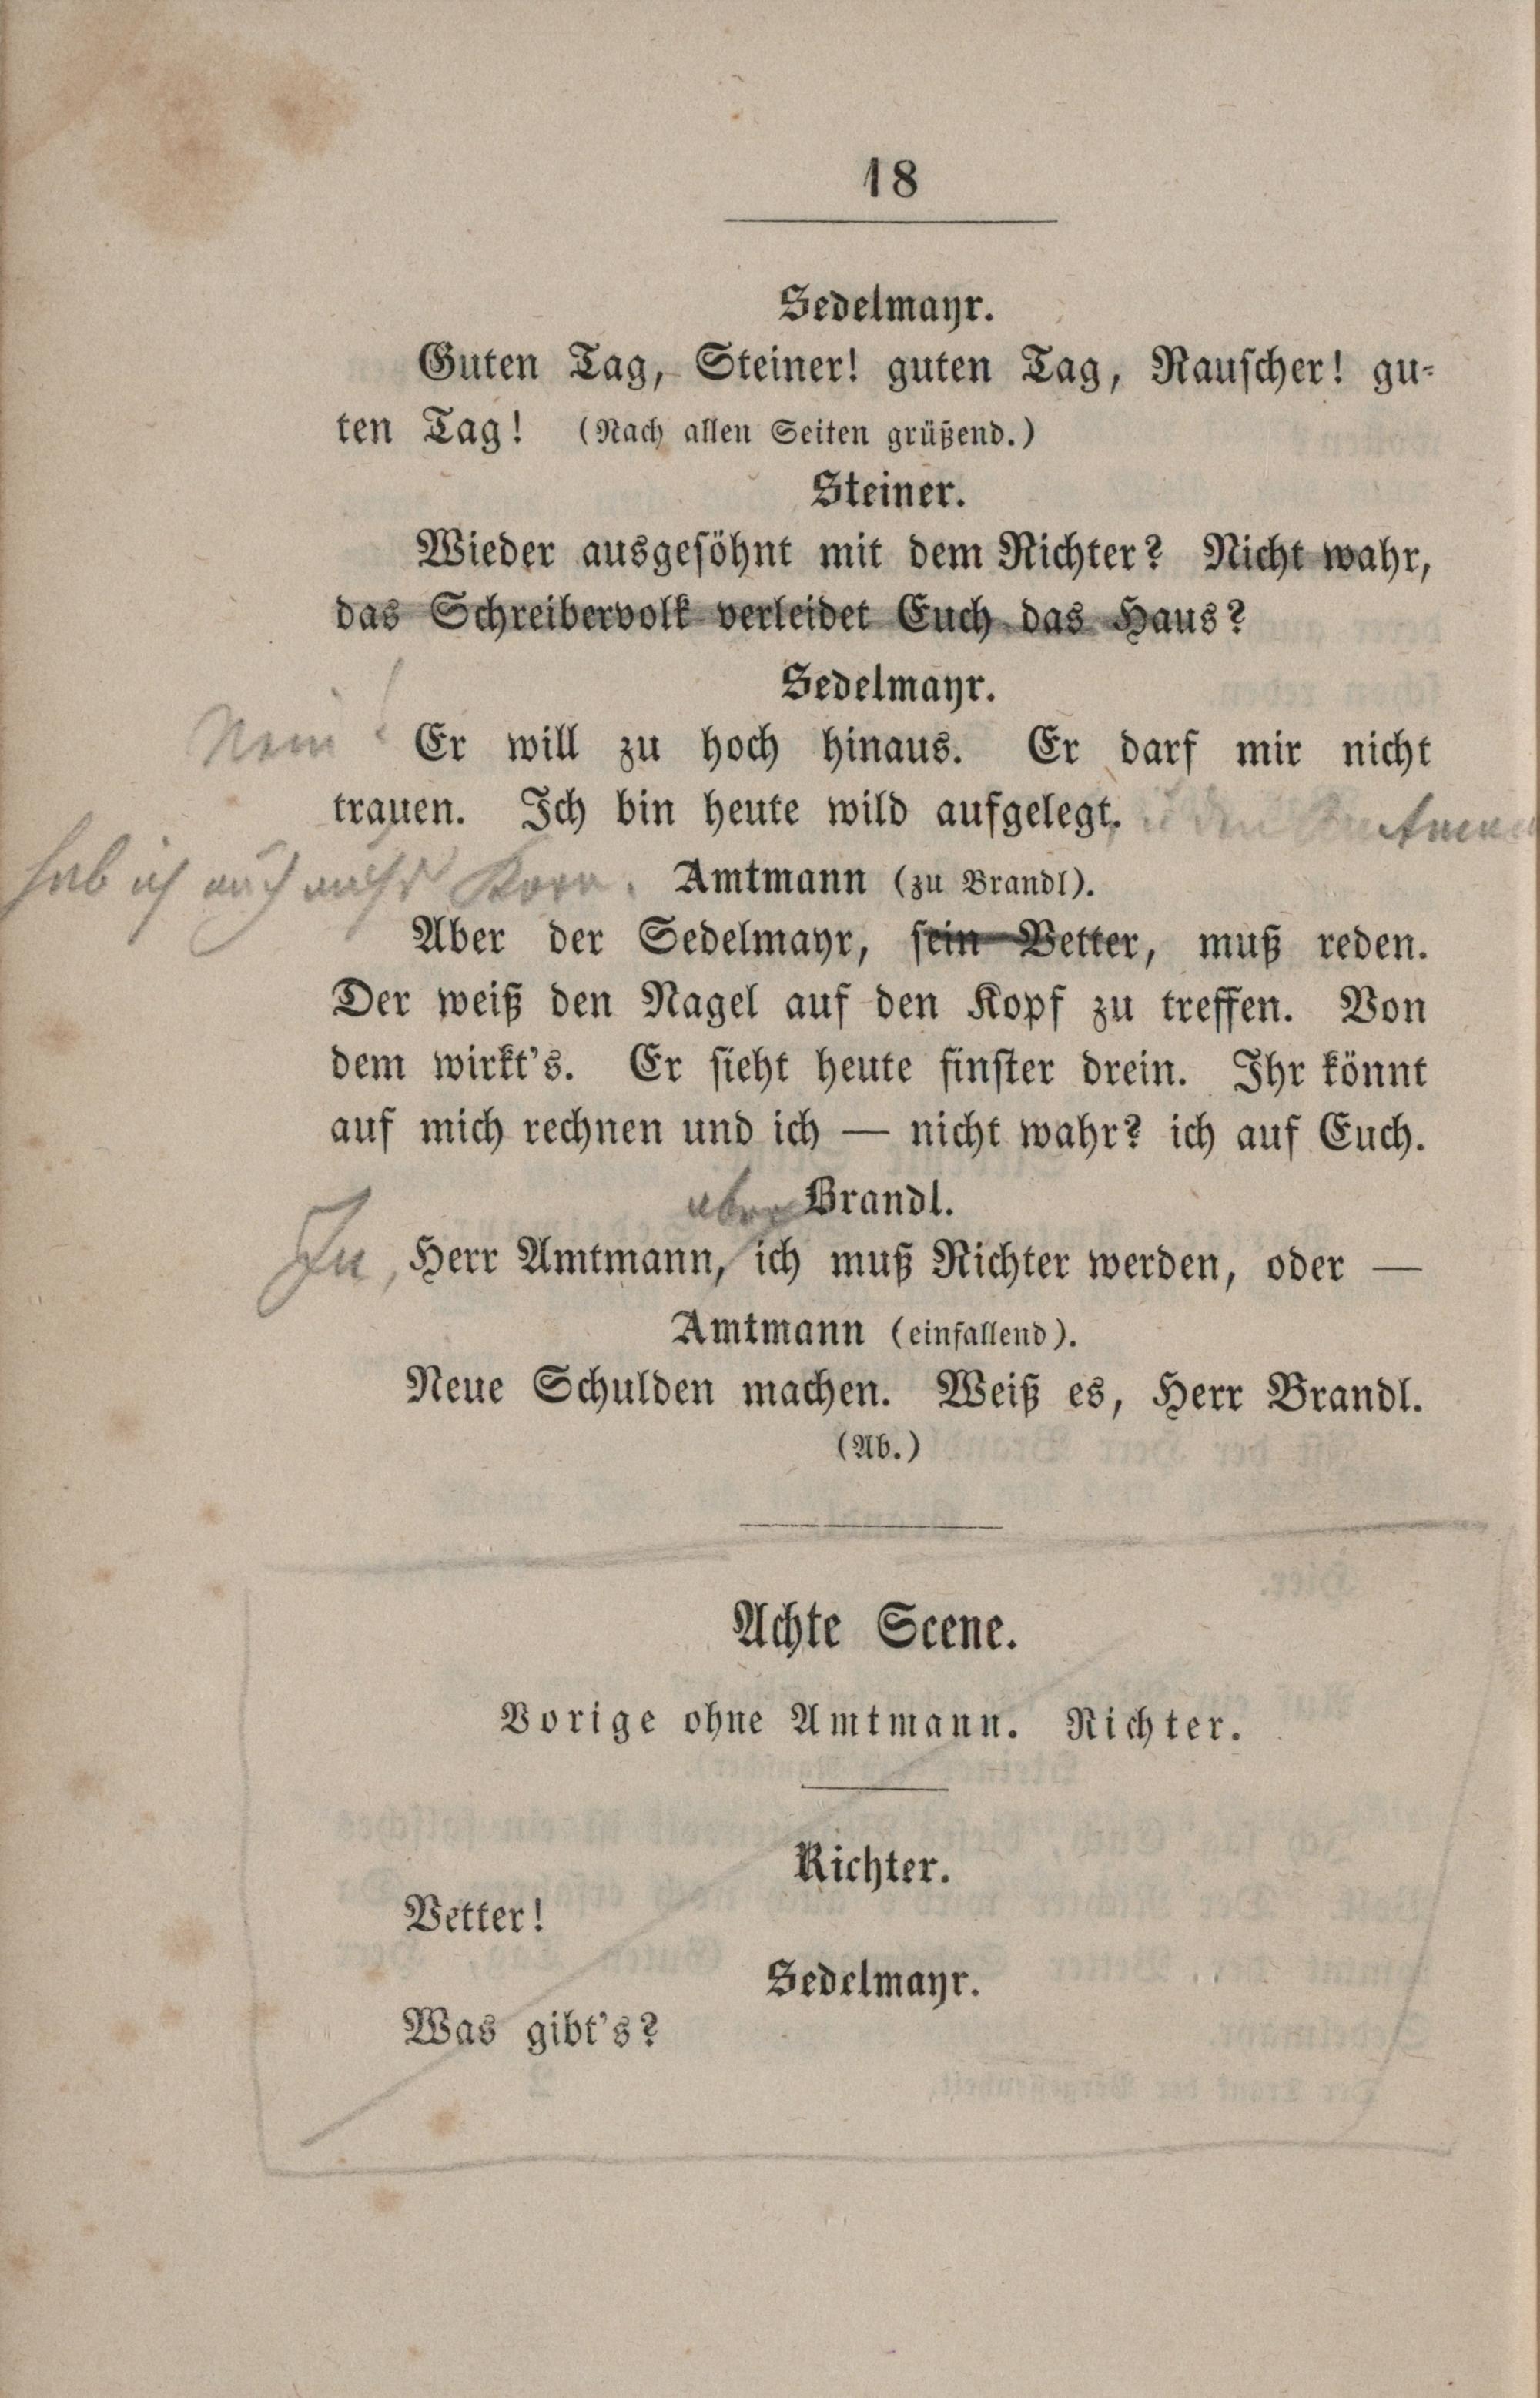 18
Sedelmayr.
Guten Tag, Steiner! guten Tag, Rauscher! gu-
ten Tag! (Nach allen Seiten grüßend.)
Steiner.
Wieder ausgesöhnt mit dem Richter? Nicht wahr,
das Schreibervolk verleidet Euch das Haus?
Sedelmayr.
Nein! Er will zu hoch hinaus. Er darf mir nicht
trauen. Ich bin heute wild aufgelegt, u den Amtmann
hab ich auch aufs Korn. Amtmann (zu Brandl).
Aber der Sedelmayr, sein Vetter, muß reden.
Der weiß den Nagel auf den Kopf zu treffen. Von
dem wirkt's. Er sieht heute finster drein. Ihr könnt
auf mich rechnen und ich — nicht wahr? ich auf Euch.
aber Brandl.
Ja, Herr Amtmann, ich muß Richter werden, oder —
Amtmann (einfallend).
Neue Schulden machen. Weiß es, Herr Brandl.
(Ab.)
Achte Scene.
Vorige ohne Amtmann. Richter.
Richter.
Vetter!
Sedelmayr.
Was gibt's?